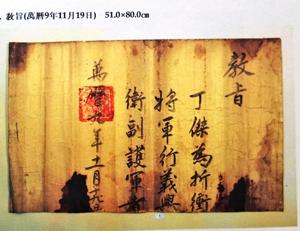 敎旨(萬曆9年11月19日) 51.0×80.0㎝
敎旨
丁傑為折衝
將軍行義興
衛副護軍者
萬曆九年十一月十九日